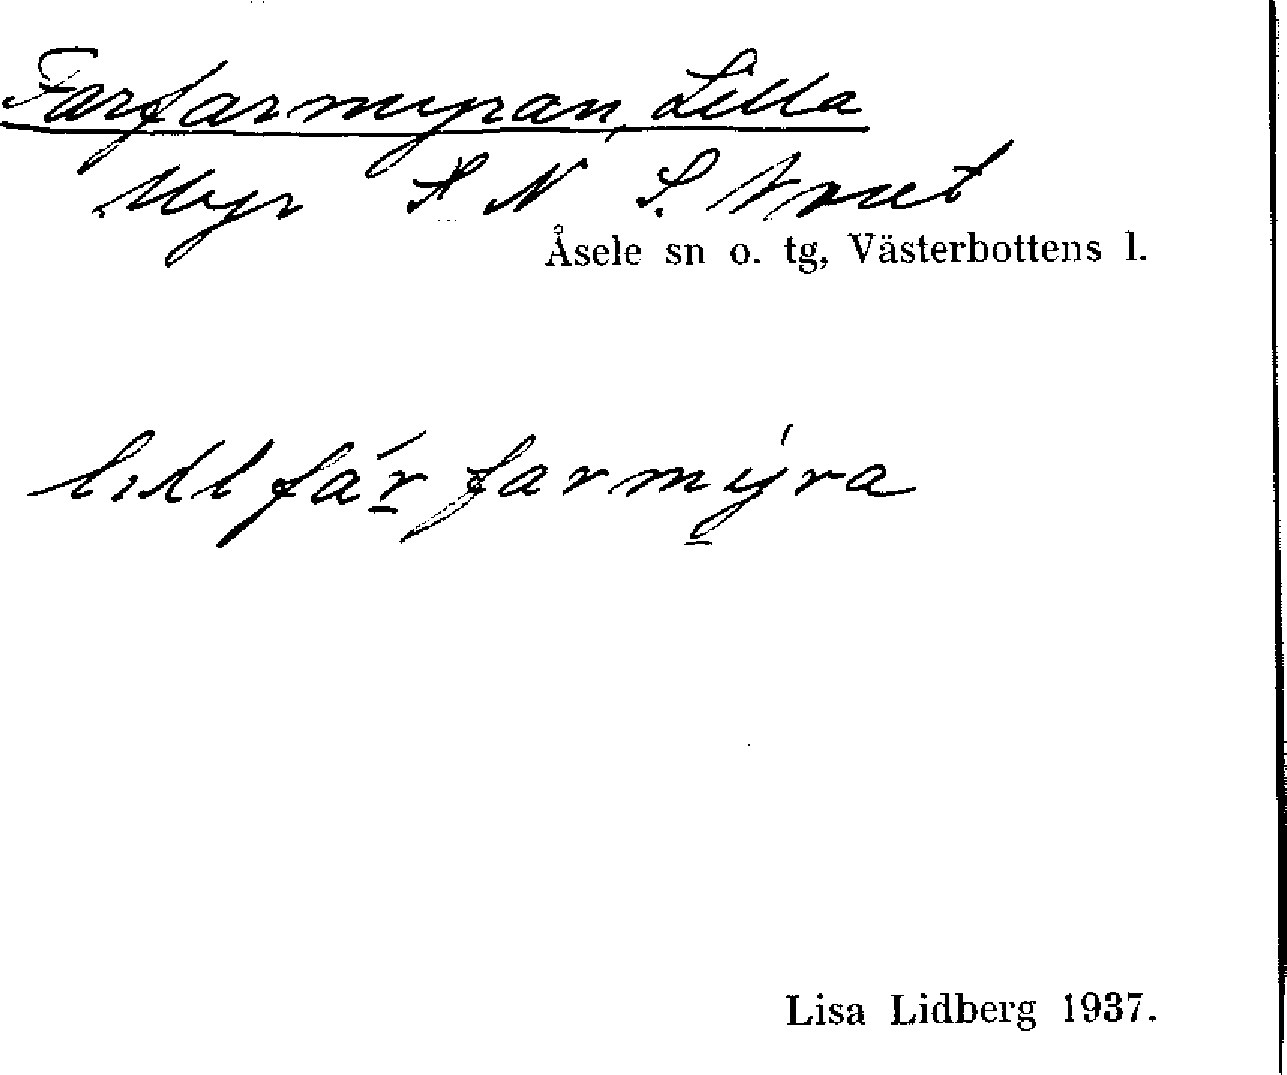 Farfarmyran, Lilla
Myr N S.
Åsele sn o. tg, Västerbottens l.
lillfárfarmýra
Lisa Lidberg 1937.